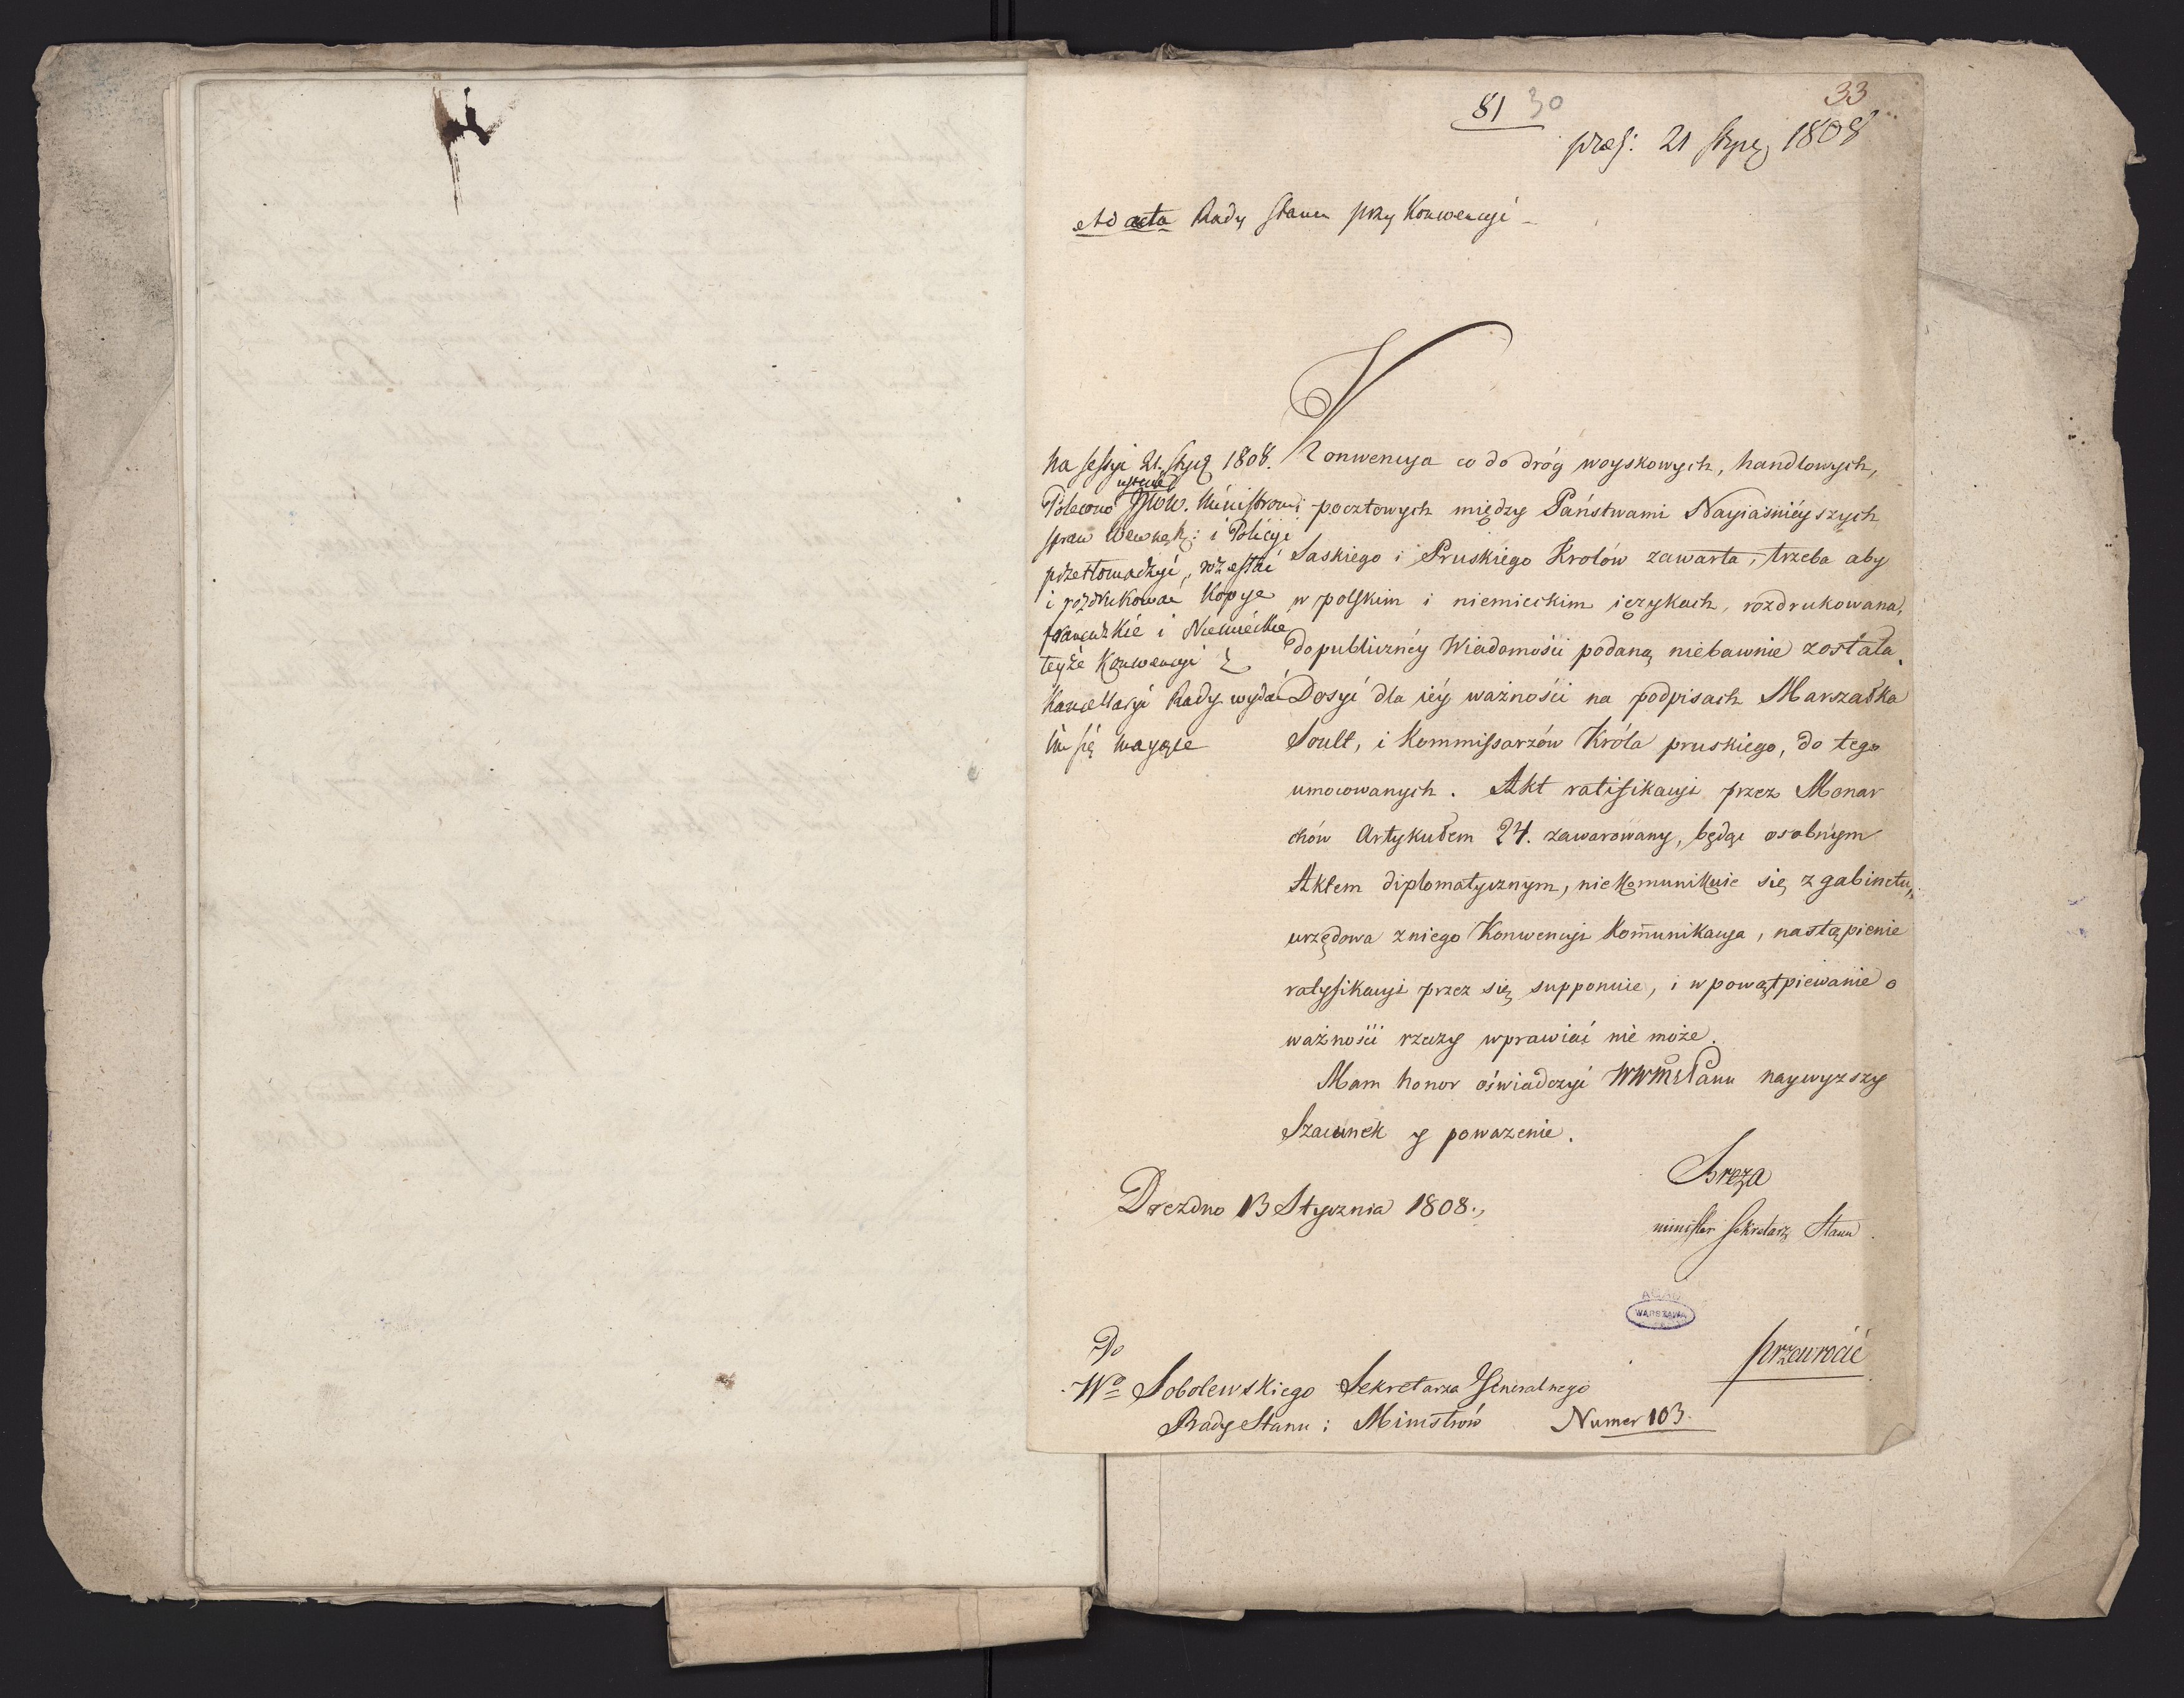 81 30
33
præs: 21 stycz 1808
Ad acta Rady stanu przy Konwencyi
Na sessyi 21. stycz 1808.
Polecono ustnie JPWW. Ministrowi
spraw Wewnętr: i Policyi
przetłomaczyć, rozesłać
i rozdrukować Kopye
francuzkie i Niemieckie
teyże Konwencyi z
Kancellaryi Rady wydać
im się maiące
Konwencya co do dróg woyskowych, handlowych,
i pocztowych między Państwami Nayiaśnieyszych
Saskiego i Pruskiego Krolów zawarta, trzeba aby
w polskim i niemieckim ięzykach, rozdrukowana,
do publiczney Wiadomości podaną niebawnie została.
Dosyć dla iéy ważności na podpisach Marszałka
Soult, i Kommissarzów Króla pruskiego, do tego
umocowanych. Akt ratifikacyi przez Monar
chów Artykułem 24. zawarowany, będąc osobnym
Aktem diplomatycznym, nie komunikuie się z gabinetu,
urzędowa z niego Konwencyi Kom̄unikacya, nastąpienie
ratyfikacyi przez się supponuie, i w powątpiewanie o
ważności rzeczy wprawiać nie może.
Mam honor oświadczyć WWMPanu naywyzszy
Szacunek y powazenie.
Breza
minister Sekretarz Stanu
Drezdno 13 Stycznia 1808.
AGAD
WARSZAWA
Do
Wo Sobolewskiego Sekretarza Generalnego
Rady Stanu i Ministrów
Numer 103.
przewrocić